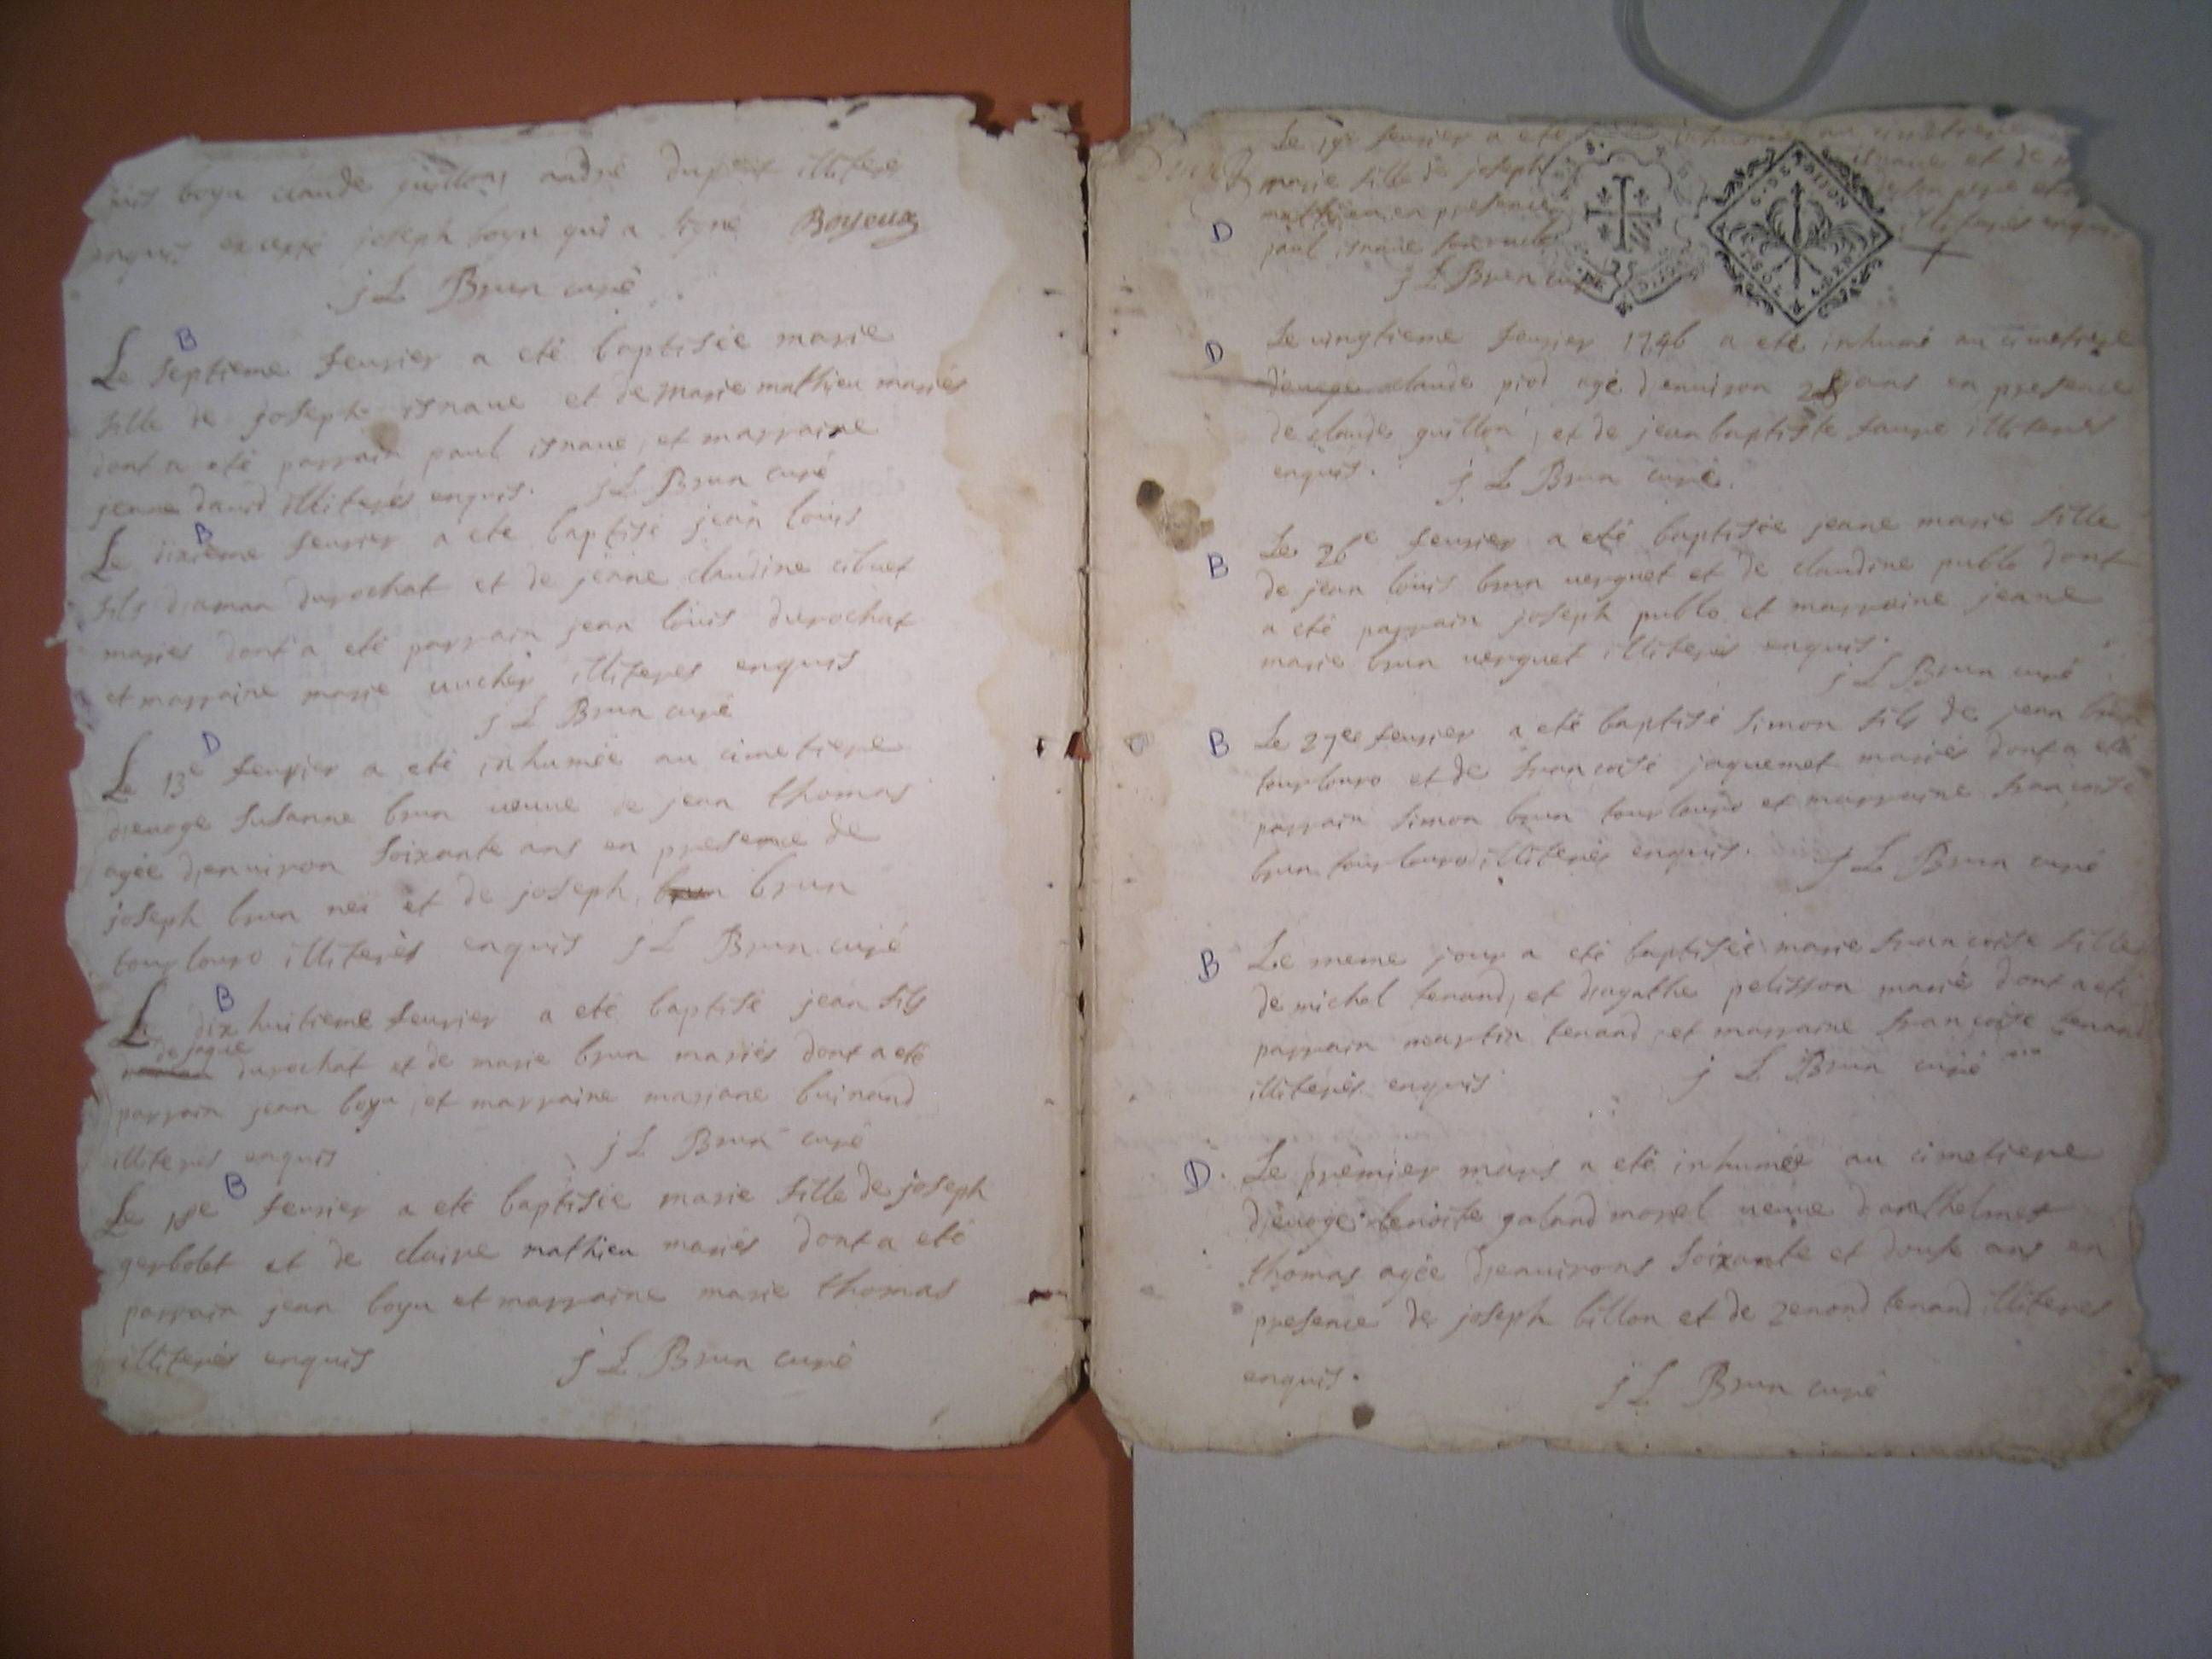 boyu claude guillon, andré dupuit illiteré
enquis excepté joseph boyu qui a signé Boyeux
j L Brun curé
B
Le septieme feurier a eté baptisée marie
fille de joseph isnaue et de marie mathieu mariés
dont a eté parrain paul isnaue, et marraine
jeanne dauid illiterés enquis. j L Brun curé
B
Le dixieme feurier a eté baptisé jean louis
fils daman durochat et de jeane claudine cibuet
mariés dont a eté parrain jean louis durochat
et marraine marie illiterés enquis
j L Brun curé
D
Le 13e feurier a eté inhumée au cimetiere
dieuoge susanne brun ueuue de jean thomas
agée denuiron soixante ans en presence de
joseph brun nei et de joseph brun brun
tourlouro illiterés enquis j L Brun curé
B
Le dixhuitieme feurier a eté baptisé jean fils
de jaque
durochat et de marie brun mariés dont a eté
parrain jean boyu, et marraine mariane buinand
illiterés enquis j L Brun curé
B
Le 18e feurier a eté baptisée marie fille de joseph
gerbolet et de claire mathieu mariés dont a eté
parrain jean boyu et marraine marie thomas
illiterés enquis j L Brun curé
Le 19e feurier a eté inhumée au cimetiere
marie fille de joseph isnaue et de
mathieu en presence de son pere et
D
paul isnaue illiterés enquis
j L Brun curé
G. DE DIJON
D
Le uingtieme feurier 1746 a eté inhumé au cimetiere
dieuoge claude piod agé denuiron 28 ans en presence
de claude guillon, et de jean baptiste faure illiterés
enquis. j L Brun curé.
B
Le 26e feurier a eté baptisée jeane marie fille
de jean louis brun uerguet et de claudine publo dont
a eté parrain joseph publo et marraine jeane
marie brun uerguet illiterés enquis.
j L Brun curé
B
Le 27e feurier a eté baptisé simon fils de jean brun
tourlouro et de francoise jaquemet mariés dont a eté
parrain simon brun tourlouro et marraine francoise
brun tourlouro illiterés enquis. j L Brun curé
B
Le meme jour a eté baptisée marie francoise fille
de michel tenand, et dagathe pelisson mariés dont a eté
parrain martin tenand, et marraine francoise tenand
illiterés enquis j L Brun curé
D.
Le premier mars a eté inhumée au cimetiere
dieuoge benoite galand morel ueuue danthelmet
thomas agée denuirons soixante et douse ans en
presence de joseph billon et de zenond tenand illiterés
enquis. j L Brun curé